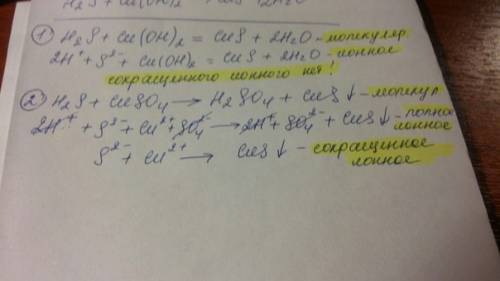 H₂S + Cu(OH)₂ CuS 2H₂O
1) H₂S + Cu(OH)₂ = CuS + 2H₂O - молекуляр
2H⁺ + S²⁻ + Cu(OH)₂ = CuS + 2H₂O - ионное
сокращенного ионного нет!
2) H₂S + CuSO₄ → H₂SO₄ + CuS↓ - молекул
2H⁺ + S²⁻ + Cu²⁺ + SO₄²⁻ → 2H⁺ + SO₄²⁻ + CuS↓ - полное
ионное
S²⁻ + Cu²⁺ → CuS↓ - сокращенное
ионное